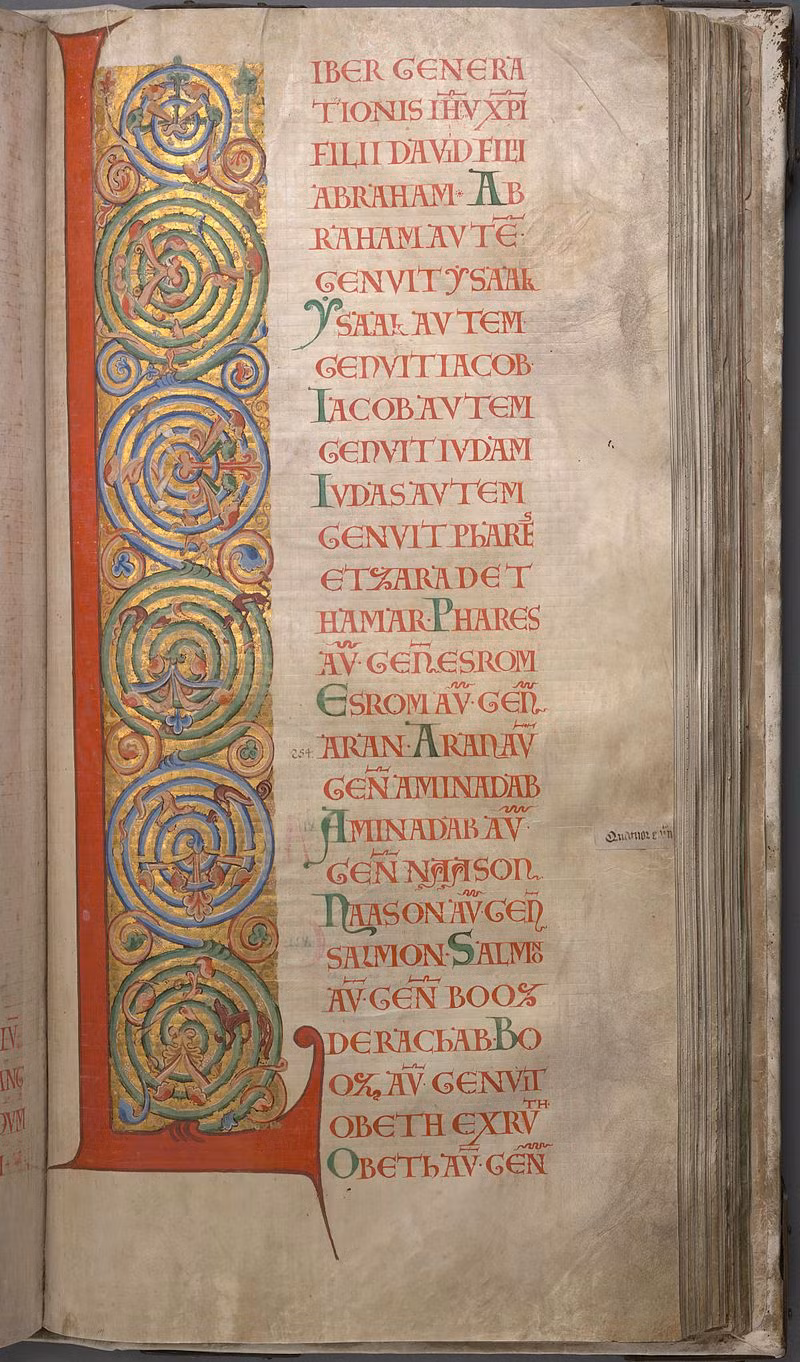 LIBER GENERA
TIONIS IHV XPI
FILII DAVID FILII
ABRAHAM· AB
RAHAM AVTE·
GENVIT YSAAK
YSAAK AVTEM
GENVIT IACOB·
IACOB AVTEM
GENVIT IVDAM
IVDAS AVTEM
GENVIT PhARES
ET ZARA DE T
HAMAR· PHARES
AV· GEN ESROM
ESROM AV· GEN
ARAN· ARAN AV
254·
GEN AMINADAB
AMINADAB AV·
GEN NAASON
NAASON AV· GEN
SALMON· SALMO
AV· GEN BOOZ
DE RAChAB· BO
OZ AV· GENVIT
OBETH EX RVTH
OBETh AV· GEN